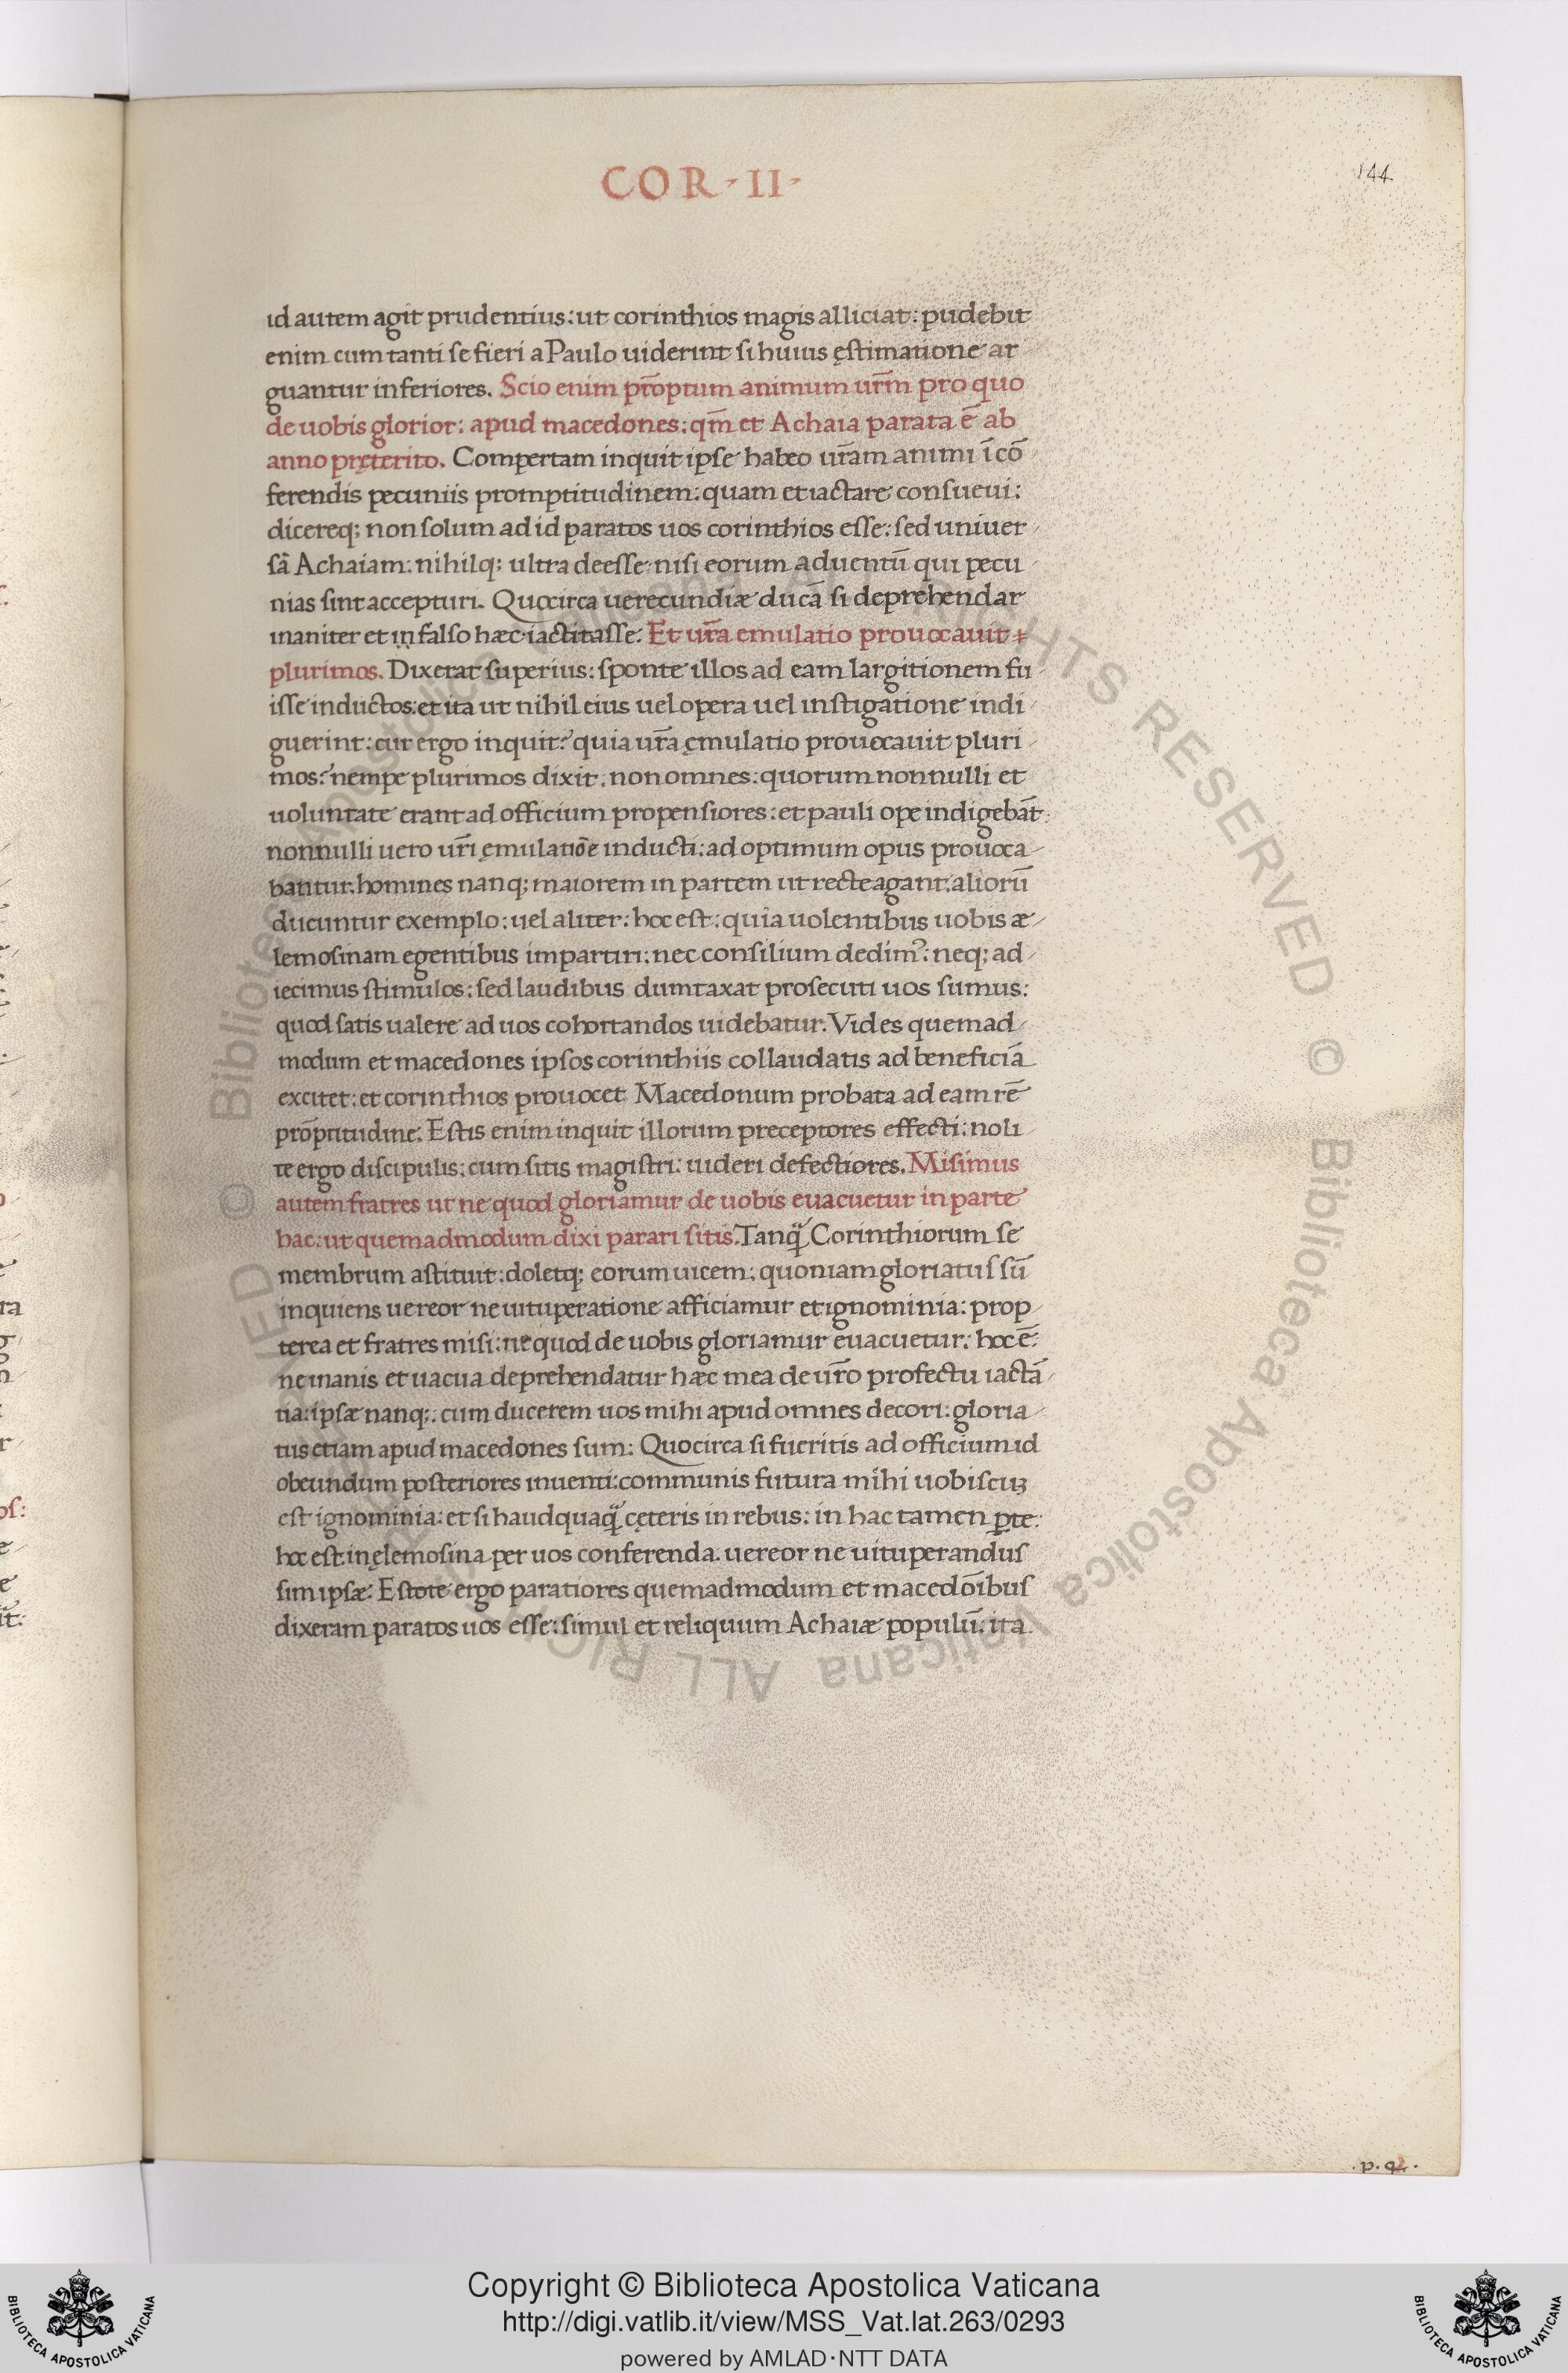 COR · II ·
144
id autem agit prudentius: ut corinthios magis alliciat: pudebit
enim cum tanti se fieri a Paulo uiderint si huius ęstimatione ar
guantur inferiores. Scio enim prōptum animum ur̄m pro quo
de uobis glorior: apud macedones: qm̄ et Achaia parata ē ab
anno pręterito. Compertam inquit ipse habeo ur̄am animi ī cō
ferendis pecuniis promptitudinem: quam et iactare consueui:
dicereq; non solum ad id paratos uos corinthios esse: sed uniuer
sā Achaiam: nihilq; ultra deesse: nisi eorum aduentū qui pecu
nias sint accepturi. Quocirca uerecundiæ ducā si deprehendar
inaniter et iṇ falso hæc iactitasse. Et ur̄a emulatio prouocauit
plurimos. Dixerat superius: sponte illos ad eam largitionem fu
isse inductos: et ita ut nihil eius uel opera uel instigatione indi
guerint: cur ergo inquit? quia ur̄a ęmulatio prouocauit pluri
mos? nempe plurimos dixit: non omnes: quorum nonnulli et
uoluntate erant ad officium propensiores: et pauli ope indigebāt:
nonnulli uero ur̄i ęmulatiōe inducti: ad optimum opus prouoca
bantur. homines nanq; maiorem in partem ut recte agant: aliorū
ducuntur exemplo: uel aliter: hoc est: quia uolentibus uobis æ
lemosinam egentibus impartiri: nec consilium dedimꝰ: neq; ad
iecimus stimulos: sed laudibus dumtaxat prosecuti uos sumus:
quod satis ualere ad uos cohortandos uidebatur. Vides quemad
modum et macedones ipsos corinthiis collaudatis ad beneficiā
excitet: et corinthios prouocet Macedonum probata ad eam rē
prōptitudine. Estis enim inquit illorum preceptores effecti: noli
te ergo discipulis: cum sitis magistri: uideri defectiores. Misimus
autem fratres ut ne quod gloriamur de uobis euacuetur in parte
hac: ut quemadmodum dixi parari sitis. Tanq̃ Corinthiorum se
membrum astituit: doletq; eorum uicem: quoniam gloriatus sū
inquiens uereor ne uituperatione afficiamur et ignominia: prop
terea et fratres misi: ne quod de uobis gloriamur euacuetur: hoc ē:
ne inanis et uacua deprehendatur hæc mea de ur̄o profectu iactā
tia: ipsæ nanq; cum ducerem uos mihi apud omnes decori: gloria
tus etiam apud macedones sum: Quocirca si fueritis ad officium id
obeundum posteriores inuenti: communis futura mihi uobiscuꝫ
est ignominia: et si haudquaq̃ cęteris in rebus: in hac tamen ꝑte:
hoc est in ęlemosina per uos conferenda. uereor ne uituperandus
sim ipsæ. Estote ergo paratiores quemadmodum et macedōibus
dixeram paratos uos esse: simul et reliquum Achaiæ populū: ita
Copyright © Biblioteca Apostolica Vaticana
http://digi.vatlib.it/view/MSS_Vat.lat.263/0293
powered by AMLAD·NTT DATA
BIBLIOTECA APOSTOLICA VATICANA
BIBLIOTECA APOSTOLICA VATICANA